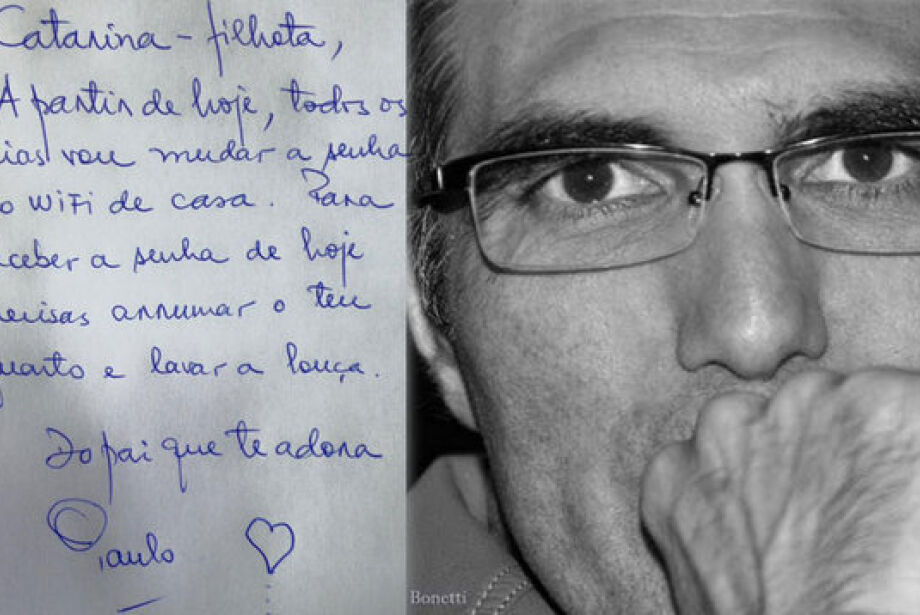 Catarina - filhota,
A partir de hoje, todos os
ias vou mudar a senha
o WiFi de casa. Para
ceber a senha de hoje
ecisas arrumar o teu
uarto e lavar a louça.
Do pai que te adora
Paulo
Bonetti